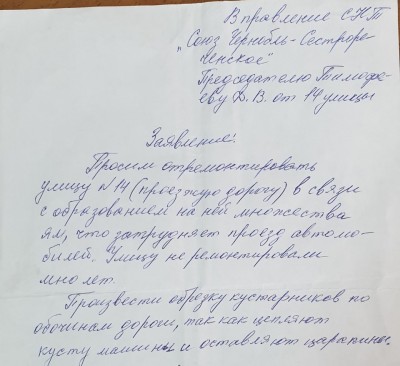 В правление СНТ
„Союз Чернобль-Сестроре-
ченское"
Председателю Тимофе-
еву Д.В. от 14 улицы
Заявление:
Просим отремонтировать
улицу №14 (проезжую дорогу) в связи
с образованием на ней множества
ям, что затрудняет проезд автомо-
билей. Улицу не ремонтировали
мно лет.
Произвести обрезку кустарников по
обочинам дороги, так как цепляют
кусту машины и оставляют царапины.